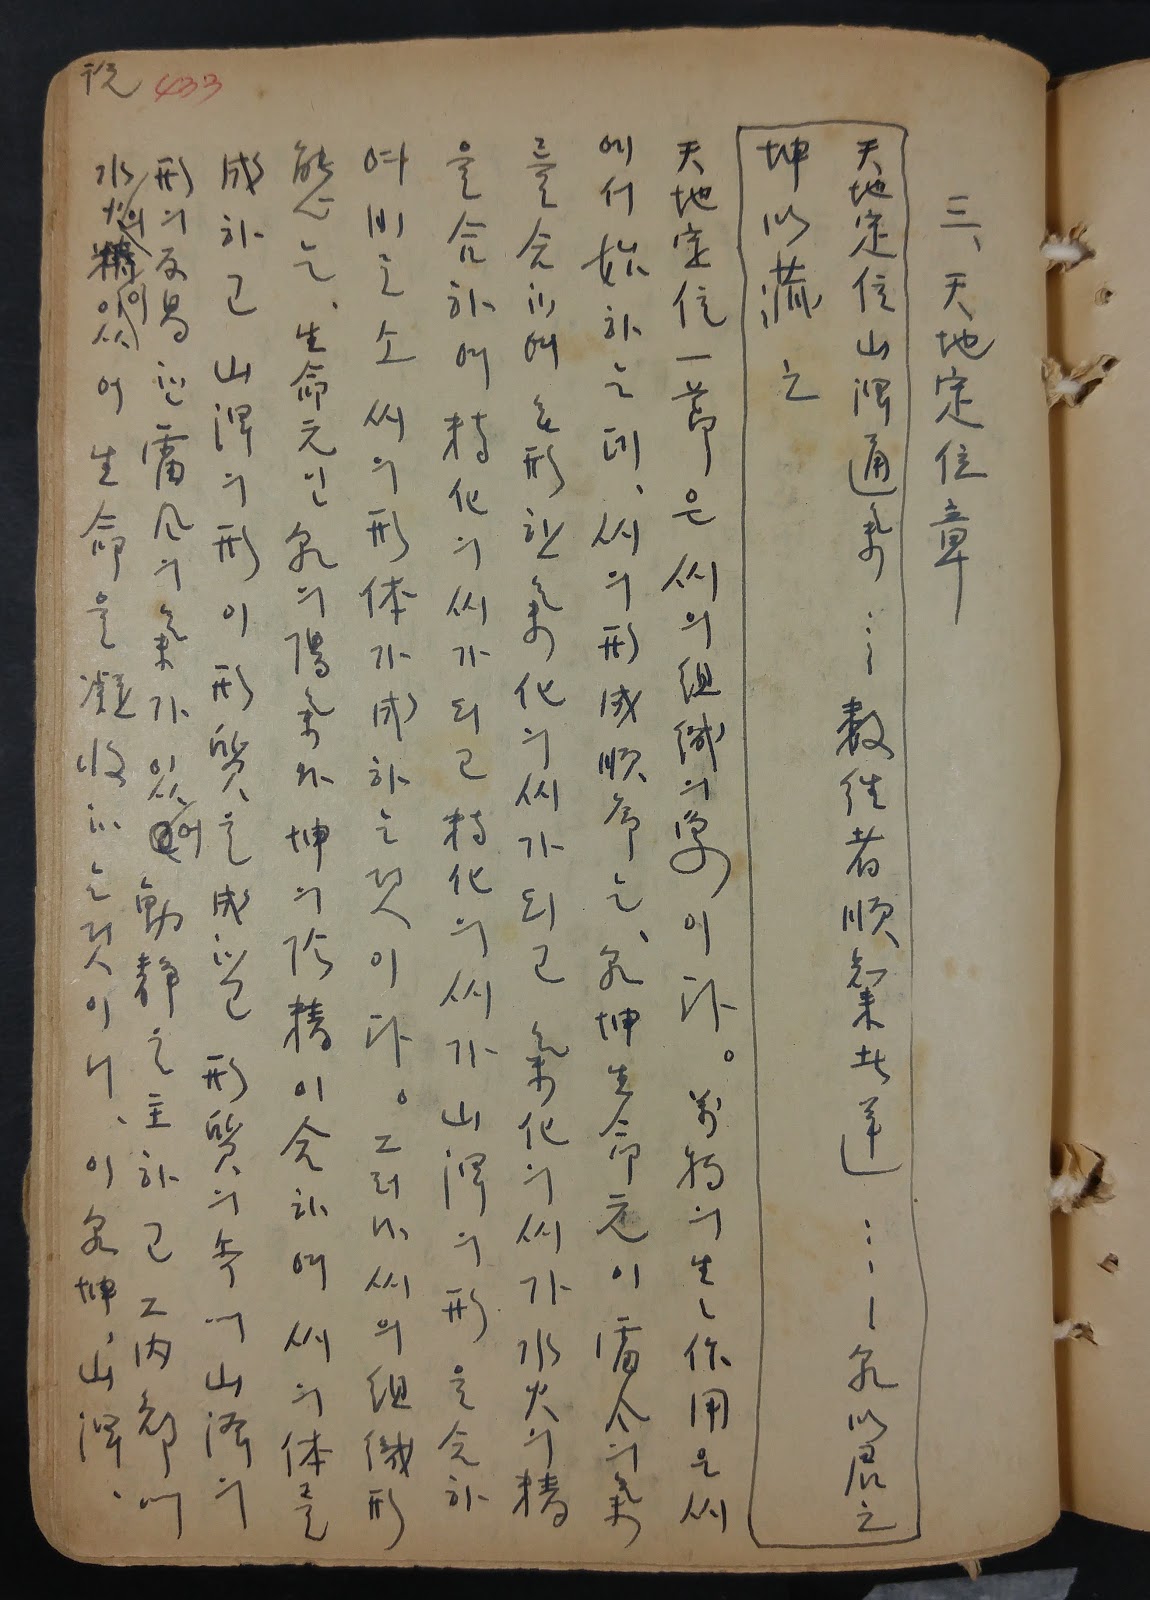 說 433
三、天地定位章
天地定位山澤通氣 ⋯ 數往者順知來者逆 ⋯ 乾以君之
坤以藏之
天地定位一節은 씨의組織의象이다。萬物의生生作用은씨
에서始하는데、씨의形成順序는、乾坤生命元이雷風의氣
를合하여 形한氣化의씨가되고 氣化의씨가水火의精
을合하여精化의씨가되고精化의씨가山澤의形을合하
여비로소씨의形体가成하는것이다。그러나씨의組織形
態는、生命元인乾의陽氣와坤의陰精이合하여씨의体를
成하고山澤의形이形質을成하고形質의속에山澤의
形의反易인雷風의氣가있어動靜을主하고그内部에
水火의精이있어生命을凝收하는것이니、이乾坤、山澤、